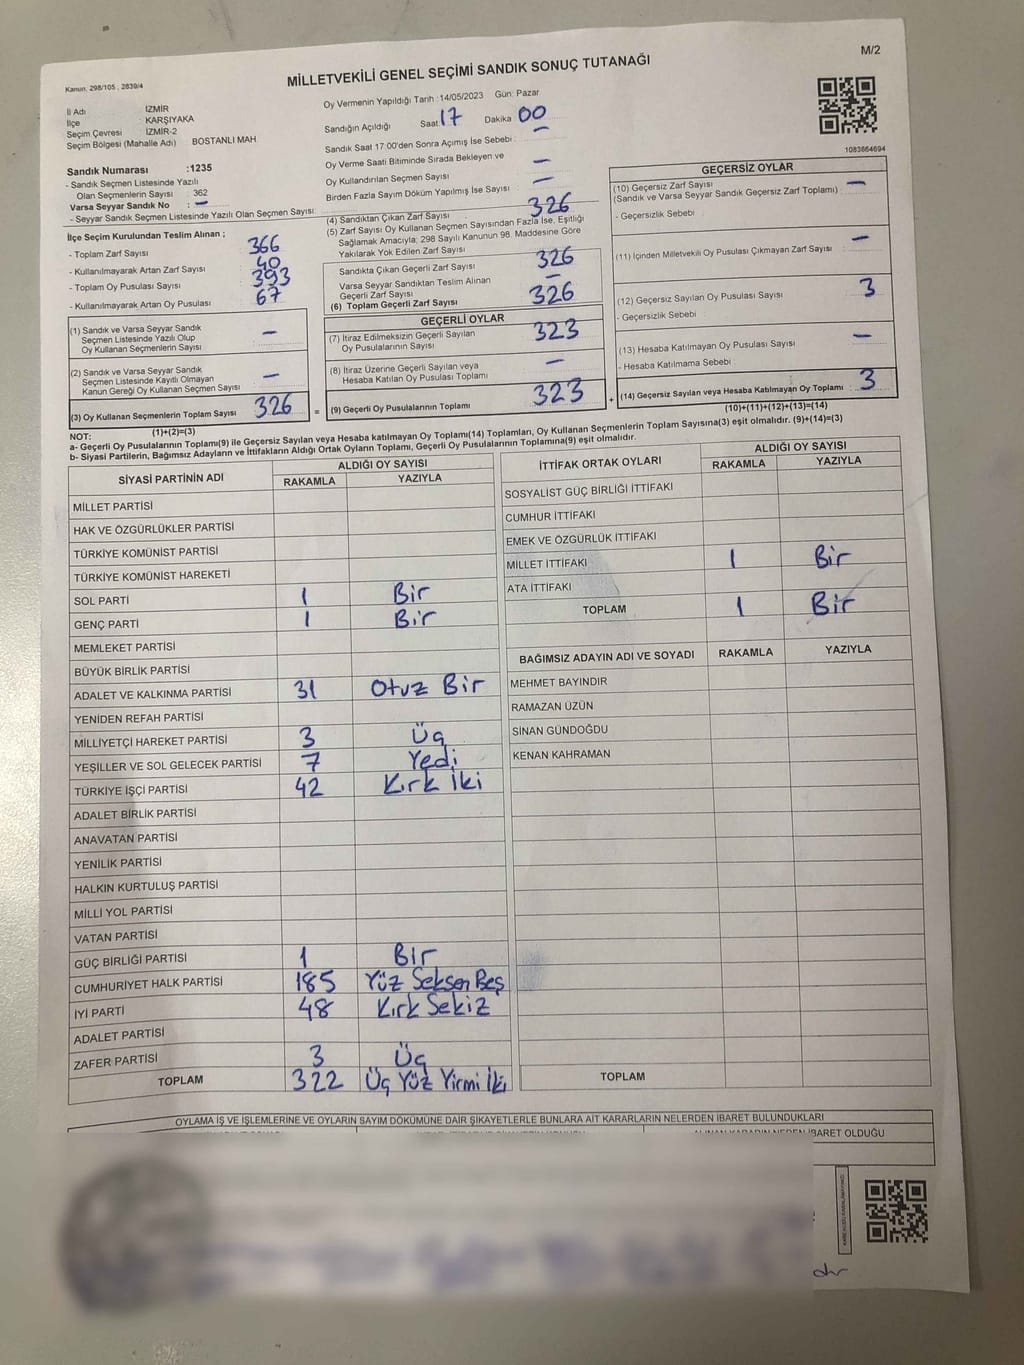 M/2
Kanun, 298/105 , 2839/4
MİLLETVEKİLİ GENEL SEÇİMİ SANDIK SONUÇ TUTANAĞI
İl Adı : İZMİR
İlçe : KARŞIYAKA
Seçim Çevresi : İZMİR-2
Seçim Bölgesi (Mahalle Adı) BOSTANLI MAH
Oy Vermenin Yapıldığı Tarih :14/05/2023 Gün: Pazar
Sandığın Açıldığı Saat: 17 Dakika 00
Sandık Saat 17:00'den Sonra Açımış İse Sebebi : —
Oy Verme Saati Bitiminde Sırada Bekleyen ve
Oy Kullandırılan Seçmen Sayısı —
Birden Fazla Sayım Döküm Yapılmış İse Sayısı —
1083864694
Sandık Numarası :1235
- Sandık Seçmen Listesinde Yazılı
Olan Seçmenlerin Sayısı : 362
Varsa Seyyar Sandık No : —
- Seyyar Sandık Seçmen Listesinde Yazılı Olan Seçmen Sayısı:
İlçe Seçim Kurulundan Teslim Alınan ;
- Toplam Zarf Sayısı : 366
- Kullanılmayarak Artan Zarf Sayısı : 40
- Toplam Oy Pusulası Sayısı : 393
- Kullanılmayarak Artan Oy Pusulası : 67
(1) Sandık ve Varsa Seyyar Sandık
Seçmen Listesinde Yazılı Olup
Oy Kullanan Seçmenlerin Sayısı —
(2) Sandık ve Varsa Seyyar Sandık
Seçmen Listesinde Kayıtlı Olmayan
Kanun Gereği Oy Kullanan Seçmen Sayısı —
(3) Oy Kullanan Seçmenlerin Toplam Sayısı 326
(1)+(2)=(3)
(4) Sandıktan Çıkan Zarf Sayısı 326
(5) Zarf Sayısı Oy Kullanan Seçmen Sayısından Fazla İse, Eşitliği
Sağlamak Amacıyla; 298 Sayılı Kanunun 98. Maddesine Göre
Yakılarak Yok Edilen Zarf Sayısı
Sandıkta Çıkan Geçerli Zarf Sayısı 326
Varsa Seyyar Sandıktan Teslim Alınan
Geçerli Zarf Sayısı —
(6) Toplam Geçerli Zarf Sayısı 326
GEÇERLİ OYLAR
(7) İtiraz Edilmeksizin Geçerli Sayılan
Oy Pusulalarının Sayısı 323
(8) İtiraz Üzerine Geçerli Sayılan veya
Hesaba Katılan Oy Pusulası Toplamı —
= (9) Geçerli Oy Pusulalarının Toplamı 323 +
GEÇERSİZ OYLAR
(10) Geçersiz Zarf Sayısı —
(Sandık ve Varsa Seyyar Sandık Geçersiz Zarf Toplamı)
- Geçersizlik Sebebi :
(11) İçinden Milletvekili Oy Pusulası Çıkmayan Zarf Sayısı —
(12) Geçersiz Sayılan Oy Pusulası Sayısı 3
- Geçersizlik Sebebi :
(13) Hesaba Katılmayan Oy Pusulası Sayısı —
- Hesaba Katılmama Sebebi :
(14) Geçersiz Sayılan veya Hesaba Katılmayan Oy Toplamı : 3
(10)+(11)+(12)+(13)=(14)
NOT:
a- Geçerli Oy Pusulalarının Toplamı(9) ile Geçersiz Sayılan veya Hesaba katılmayan Oy Toplamı(14) Toplamları, Oy Kullanan Seçmenlerin Toplam Sayısına(3) eşit olmalıdır. (9)+(14)=(3)
b- Siyasi Partilerin, Bağımsız Adayların ve İttifakların Aldığı Ortak Oyların Toplamı, Geçerli Oy Pusulalarının Toplamına(9) eşit olmalıdır.
SİYASİ PARTİNİN ADI ALDIĞI OY SAYISI
RAKAMLA YAZIYLA
MİLLET PARTİSİ
HAK VE ÖZGÜRLÜKLER PARTİSİ
TÜRKİYE KOMÜNİST PARTİSİ
TÜRKİYE KOMÜNİST HAREKETİ
SOL PARTİ 1 Bir
GENÇ PARTİ 1 Bir
MEMLEKET PARTİSİ
BÜYÜK BİRLİK PARTİSİ
ADALET VE KALKINMA PARTİSİ 31 Otuz Bir
YENİDEN REFAH PARTİSİ
MİLLİYETÇİ HAREKET PARTİSİ 3 Üç
YEŞİLLER VE SOL GELECEK PARTİSİ 7 Yedi
TÜRKİYE İŞÇİ PARTİSİ 42 Kırk İki
ADALET BİRLİK PARTİSİ
ANAVATAN PARTİSİ
YENİLİK PARTİSİ
HALKIN KURTULUŞ PARTİSİ
MİLLİ YOL PARTİSİ
VATAN PARTİSİ
GÜÇ BİRLİĞİ PARTİSİ 1 Bir
CUMHURİYET HALK PARTİSİ 185 Yüz Seksen Beş
İYİ PARTİ 48 Kırk Sekiz
ADALET PARTİSİ
ZAFER PARTİSİ 3 Üç
TOPLAM 322 Üç Yüz Yirmi İki
İTTİFAK ORTAK OYLARI ALDIĞI OY SAYISI
RAKAMLA YAZIYLA
SOSYALİST GÜÇ BİRLİĞİ İTTİFAKI
CUMHUR İTTİFAKI
EMEK VE ÖZGÜRLÜK İTTİFAKI
MİLLET İTTİFAKI 1 Bir
ATA İTTİFAKI
TOPLAM 1 Bir
BAĞIMSIZ ADAYIN ADI VE SOYADI RAKAMLA YAZIYLA
MEHMET BAYINDIR
RAMAZAN ÜZÜN
SİNAN GÜNDOĞDU
KENAN KAHRAMAN
TOPLAM
OYLAMA İŞ VE İŞLEMLERİNE VE OYLARIN SAYIM DÖKÜMÜNE DAİR ŞİKAYETLERLE BUNLARA AİT KARARLARIN NELERDEN İBARET BULUNDUKLARI
İBARET OLDUĞU